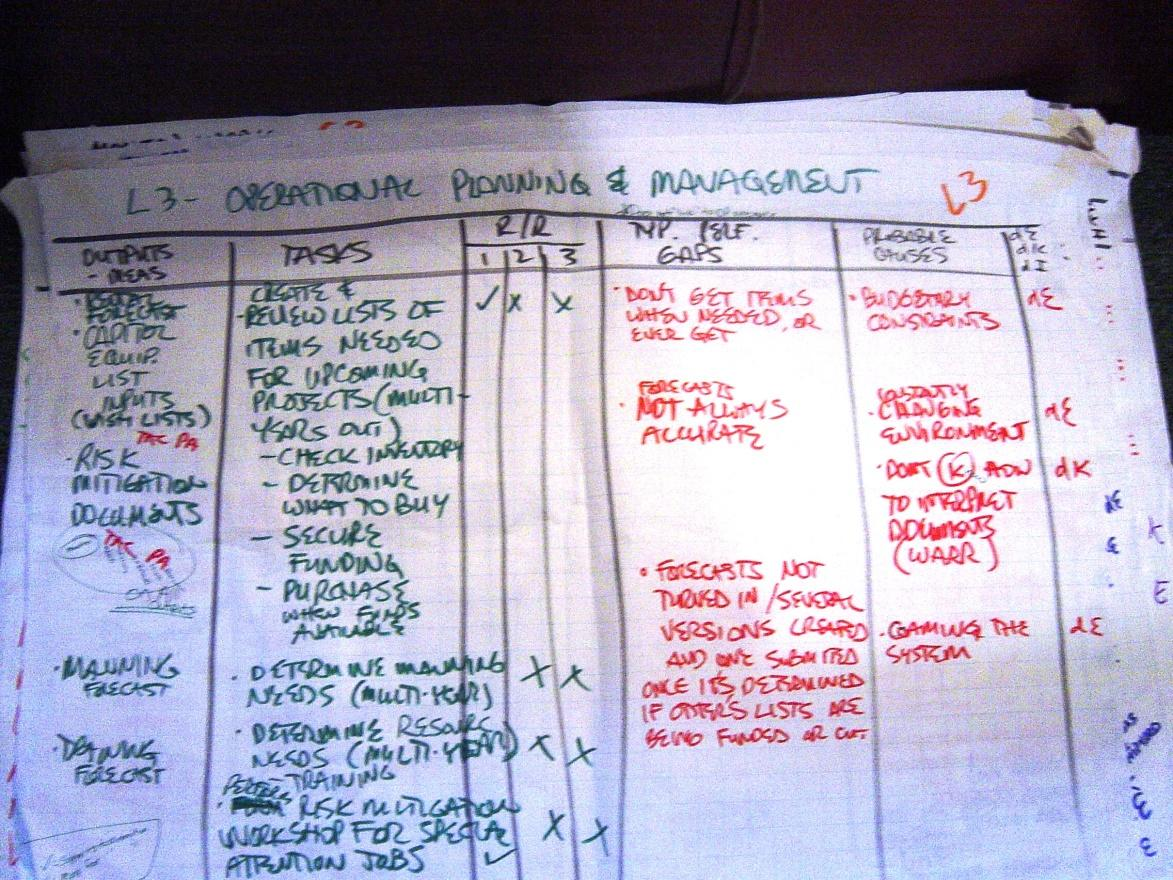 L3- OPERATIONAL PLANNING & MANAGEMENT
L3
OUTPUTS
- MEAS
TASKS
R/R
1 2 3
TYP. PERF.
GAPS
PROBABLE
CAUSES
dE
dK
dI
FORECAST
· CAPITOL
EQUIP.
LIST
INPUTS
(WISH LISTS)
TAC PA
· RISK
MITIGATION
DOCUMENTS
TAC PA
· MANNING
FORECAST
· TRAINING
FORECAST
CREATE &
- REVIEW LISTS OF
ITEMS NEEDED
FOR UPCOMING
PROJECTS (MULTI-
YEARS OUT)
- CHECK INVENTORY
- DETERMINE
WHAT TO BUY
- SECURE
FUNDING
- PURCHASE
WHEN FUNDS
AVAILABLE
· DETERMINE MANNING
NEEDS (MULTI-YEAR)
· DETERMINE
NEEDS (MULTI-YEAR)
TRAINING
· PERFORM RISK MITIGATION
WORKSHOP FOR SPECIAL
ATTENTION JOBS
✓ X X
X X
X X
X X
✓
· DON'T GET ITEMS
WHEN NEEDED, OR
EVER GET
FORECASTS
· NOT ALWAYS
ACCURATE
· FORECASTS NOT
TURNED IN / SEVERAL
VERSIONS CREATED
AND ONE SUBMITED
ONCE ITS DETERMINED
IF OTHER'S LISTS ARE
BEING FUNDED OR CUT
· BUDGETARY
CONSTRAINTS
dE
CONSTANTLY
· CHANGING
ENVIRONMENT
dE
· DON'T K
dK
TO INTERPRET
DOCUMENTS
(WARR)
· GAMING THE
SYSTEM
dE
dE
E
K
E